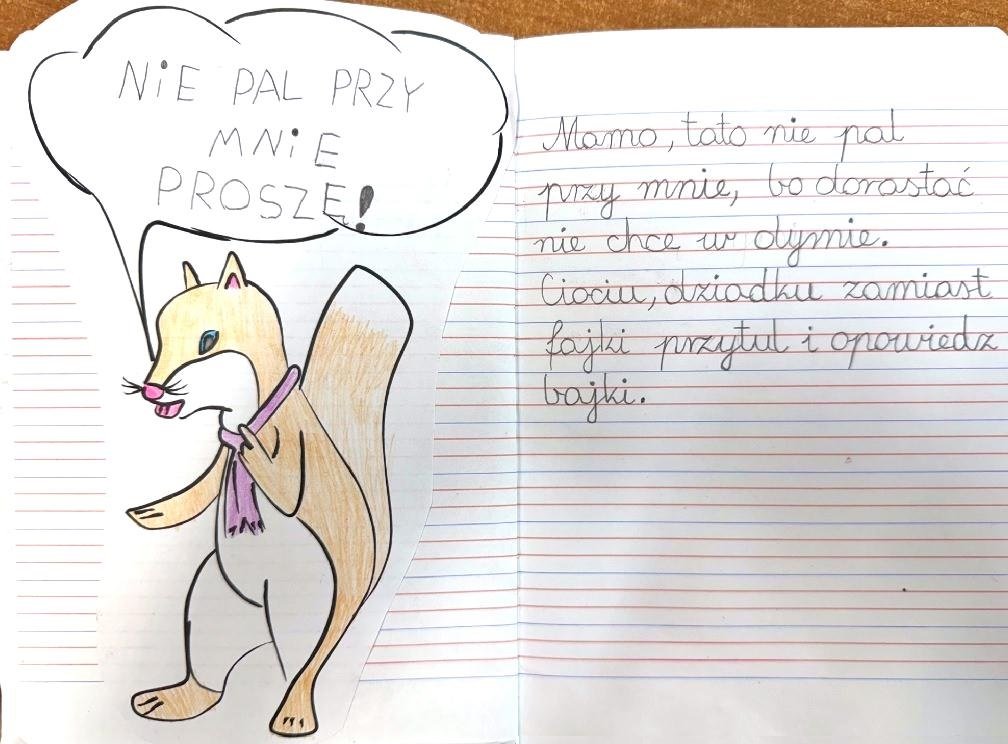 NiE PAL PRZY
MNiE
PROSZĘ!
Mamo, tato nie pal
przy mnie, bo dorastać
nie chce w dymie.
Ciociu, dziadku zamiast
fajki przytul i opowiedz
bajki.